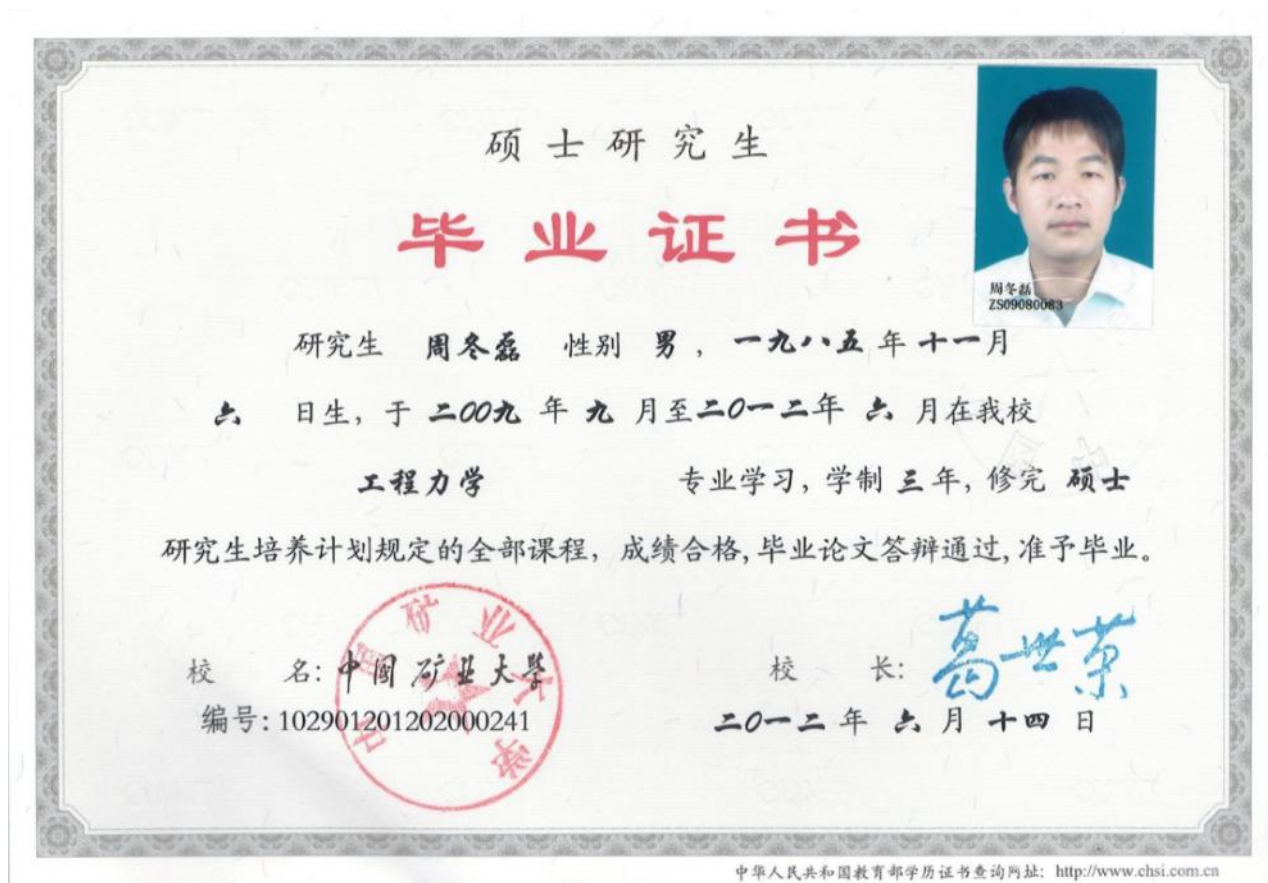 硕士研究生
毕业证书
周冬磊
ZS09080083
研究生 周冬磊 性别 男，一九八五年十一月
六 日生，于二00九年九月至二0一二年六月在我校
工程力学 专业学习，学制三年，修完 硕士
研究生培养计划规定的全部课程，成绩合格，毕业论文答辩通过，准予毕业。
校 名：中国矿业大学
校 长：葛世荣
编号：102901201202000241
二0一二年六月十四日
中国矿业大学
中华人民共和国教育部学历证书查询网址：http://www.chsi.com.cn